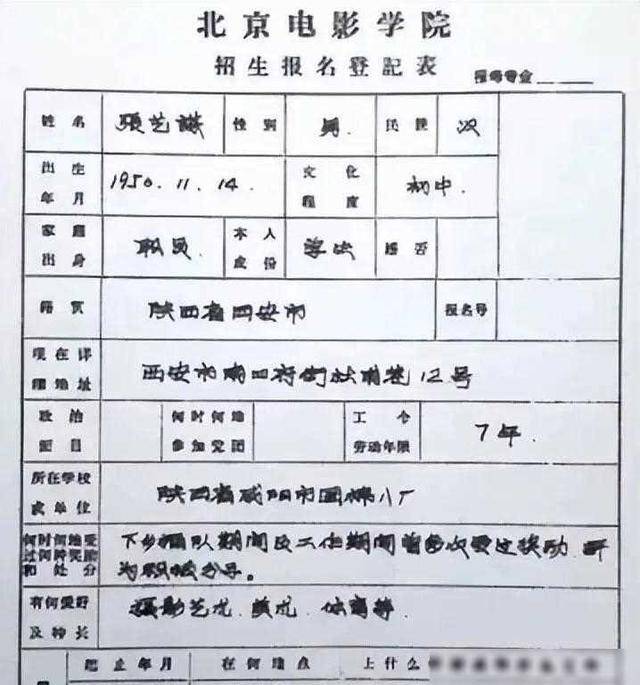 北京电影学院
招生报名登記表
报考专业
姓名 張艺謀 性别 男. 民族 汉
出生年月 1950.11.14. 文化程度 初中.
家庭出身 职员. 本人成份 学生 婚否
籍贯 陕西省西安市 报名号
现在详细地址 西安市南四府街 12号
政治面目 何时何地参加党团 工令劳动年限 7年.
所在学校或单位 陕西省咸阳市国棉八厂
何时何地受过何种奖励和处分 下乡插队期间及工作期间曾多次受过奖励.
有何爱好及特长 摄影艺术. 美术. 体育等.
起止年月 在何地点 上什么